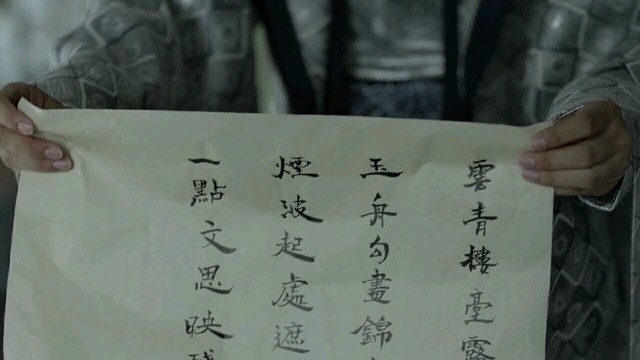 雲青樓臺露
玉舟勾畫錦
煙波起處遮
一點文思映